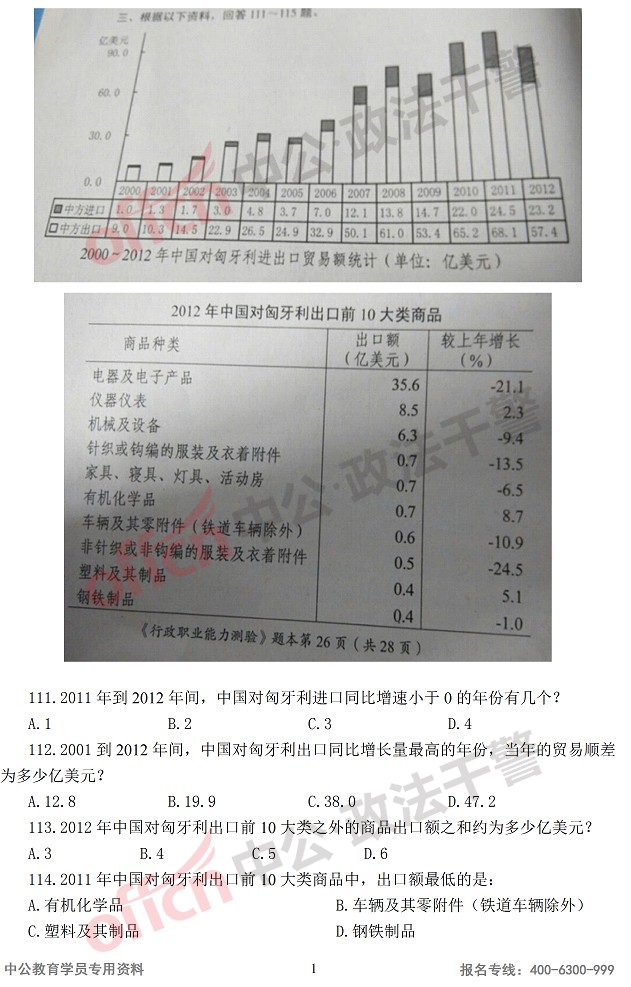 三、根据以下资料，回答111～115题。
亿美元
90.0
60.0
30.0
0.0
2000 2001 2002 2003 2004 2005 2006 2007 2008 2009 2010 2011 2012
中方进口 1.0 1.3 1.7 3.0 4.8 3.7 7.0 12.1 13.8 14.7 22.0 24.5 23.2
中方出口 9.0 10.3 14.5 22.9 26.5 24.9 32.9 50.1 61.0 53.4 65.2 68.1 57.4
2000～2012年中国对匈牙利进出口贸易额统计（单位：亿美元）
2012年中国对匈牙利出口前10大类商品
商品种类 出口额（亿美元） 较上年增长（%）
电器及电子产品 35.6 -21.1
仪器仪表 8.5 2.3
机械及设备 6.3 -9.4
针织或钩编的服装及衣着附件 0.7 -13.5
家具、寝具、灯具、活动房 0.7 -6.5
有机化学品 0.7 8.7
车辆及其零附件（铁道车辆除外） 0.6 -10.9
非针织或非钩编的服装及衣着附件 0.5 -24.5
塑料及其制品 0.4 5.1
钢铁制品 0.4 -1.0
《行政职业能力测验》题本第26页（共28页）
offcn中公·政法干警
111.2011年到2012年间，中国对匈牙利进口同比增速小于0的年份有几个？
A.1 B.2 C.3 D.4
112.2001到2012年间，中国对匈牙利出口同比增长量最高的年份，当年的贸易顺差
为多少亿美元？
A.12.8 B.19.9 C.38.0 D.47.2
113.2012年中国对匈牙利出口前10大类之外的商品出口额之和约为多少亿美元？
A.3 B.4 C.5 D.6
114.2011年中国对匈牙利出口前10大类商品中，出口额最低的是：
A.有机化学品 B.车辆及其零附件（铁道车辆除外）
C.塑料及其制品 D.钢铁制品
中公教育学员专用资料 1 报名专线：400-6300-999